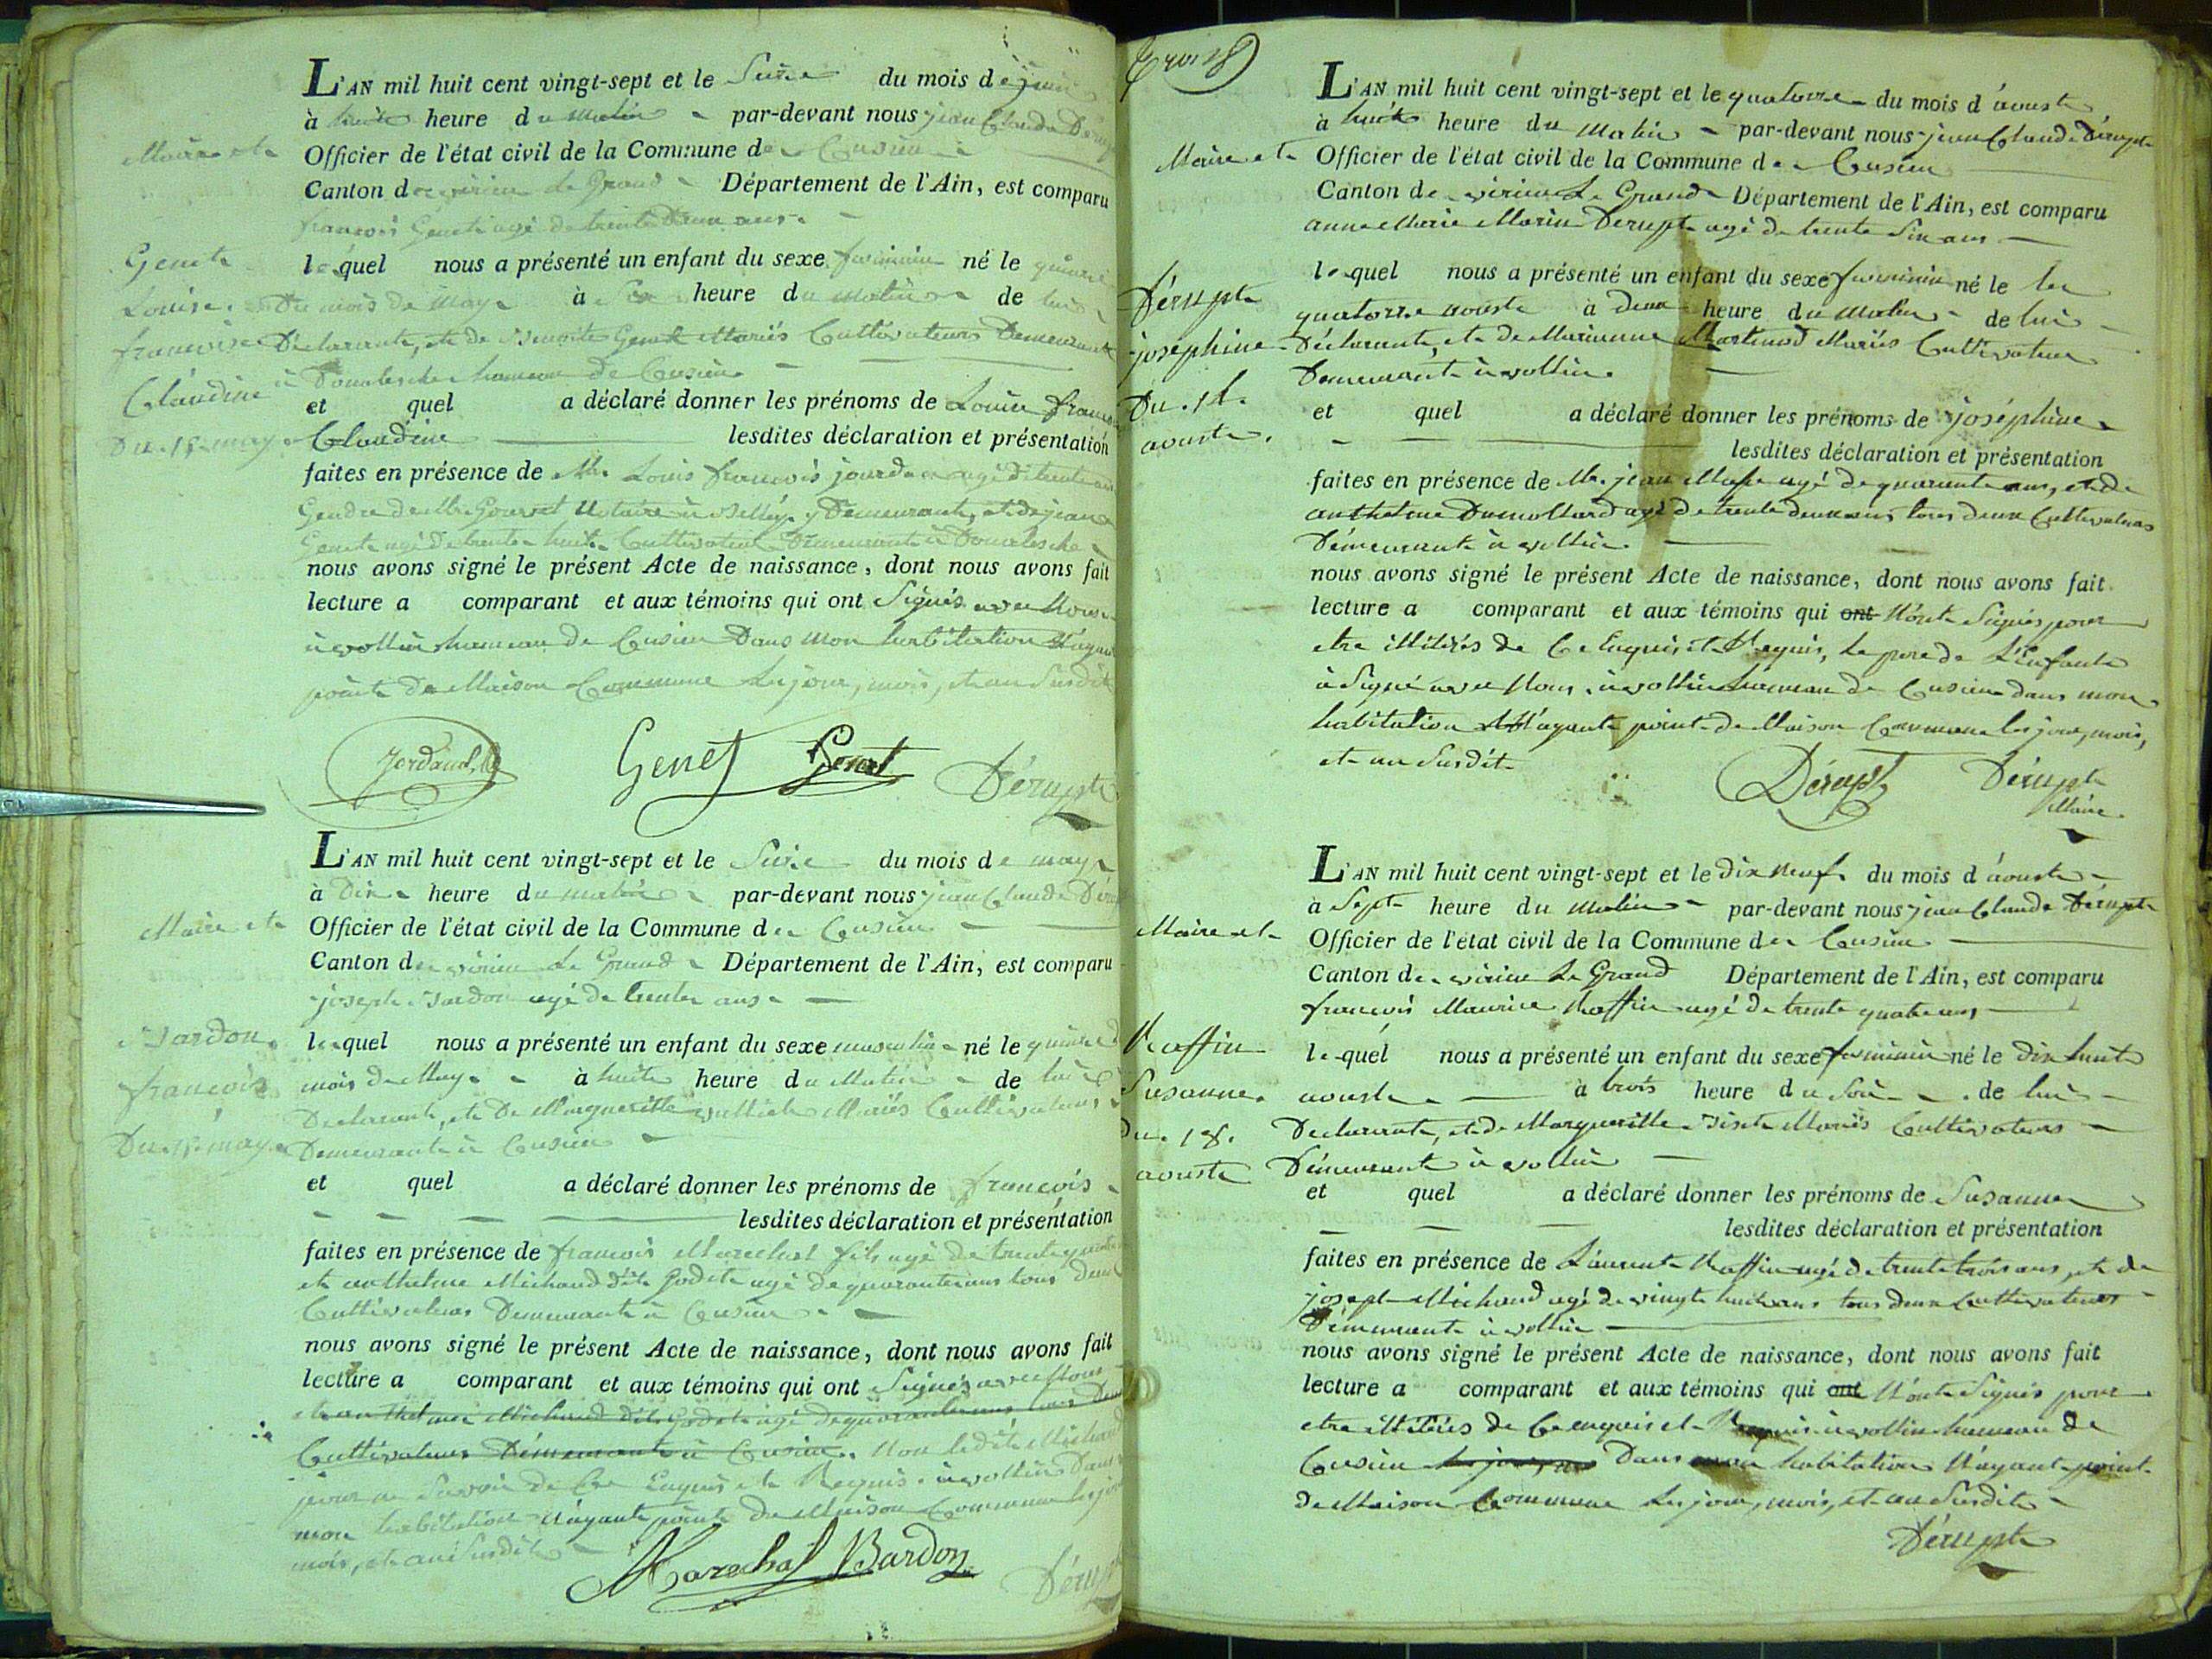 L'AN mil huit cent vingt-sept et le Seize du mois de
à huit heure du matin par-devant nous jean Claude Dérupt
Maire et Officier de l'état civil de la Commune de Cusieu
Canton de virieu le Grand Département de l'Ain, est comparu
françois Genet agé de trente Deux ans
Genet
Louise
françoise
Claudine
Du 15 may
lequel nous a présenté un enfant du sexe feminin né le quinze
Du mois de may à Six heure du matin de lui
Déclarant, et de Genet Mariés Cultivateurs Demeurant
à hameau de Cusieu
et quel a déclaré donner les prénoms de Louise
Claudine lesdites déclaration et présentation
faites en présence de Mr Louis françois jourdan agé de trente
Gendre de Mr Notaire à Belley y Demeurant, et de jean
Genet agé de trente huit Cultivateur Demeurant à
nous avons signé le présent Acte de naissance, dont nous avons fait
lecture a comparant et aux témoins qui ont Signés avec Nous
à vollin hameau de Cusieu Dans mon habitation N'ayant
point de Maison Commune les jour, mois, et an Susdit
Genet Genet Dérupt
L'AN mil huit cent vingt-sept et le Seize du mois de may
à Dix heure du matin par-devant nous jean Claude
Maire et Officier de l'état civil de la Commune de Cusieu
Canton de virieu le Grand Département de l'Ain, est comparu
joseph Bardon agé de trente ans
Bardon
françois
Du 15 may
lequel nous a présenté un enfant du sexe masculin né le quinze
mois de May à huit heure du Matin de lui
Declarant, et de Margueritte Mariés Cultivateurs
Demeurant à Cusieu
et quel a déclaré donner les prénoms de françois
lesdites déclaration et présentation
faites en présence de françois Marechal fils agé de trente quatre
et anthelme Michaud dit Godet agé de quarante ans tous deux
Cultivateurs Demeurant à Cusieu
nous avons signé le présent Acte de naissance, dont nous avons fait
lecture a comparant et aux témoins qui ont Signés avec Nous
et anthelme Michaud dit Godet agé de quarante ans tous Deux
Cultivateurs Démeurant à Cusieu. Non ledit Michaud
pour ne Savoir de Ce Enquis et Requis. à vollin Dans
mon habitation N'ayant point de Maison Commune les jour
mois, et an Susdit
Marechal Bardon Dérupt
L'AN mil huit cent vingt-sept et le quatorze du mois d'aoust
à huit heure du Matin par-devant nous jean Claude Dérupt
Maire et Officier de l'état civil de la Commune de Cusieu
Canton de virieu le Grand Département de l'Ain, est comparu
anne Marie Marin Derupt agé de trente Six ans
Dérupt
joséphine
Du 14
aoust
lequel nous a présenté un enfant du sexe feminin né le le
quatorze aoust à Deux heure du Matin de lui
Déclarant, et de Marianne Martinod Mariés Cultivateurs
Demeurant à vollin
et quel a déclaré donner les prénoms de joséphine
lesdites déclaration et présentation
faites en présence de Mr. jean agé de quarante ans, et de
anthelme Dumollard agé de trente deux ans tous deux Cultivateurs
Démeurant à vollin
nous avons signé le présent Acte de naissance, dont nous avons fait
lecture a comparant et aux témoins qui ont N'ont Signés pour
etre illitérés de Ce Enquis et Requis, le pere de L'enfant
à Signé avec Nous, à vollin hameau de Cusieu dans mon
habitation N'ayant point de Maison Commune les jour, mois,
et an Susdit
Dérupt Dérupt
Maire
L'AN mil huit cent vingt-sept et le dix neuf du mois d'aoust
à Sept heure du Matin par-devant nous jean Claude Dérupt
Maire et Officier de l'état civil de la Commune de Cusieu
Canton de virieu le Grand Département de l'Ain, est comparu
françois Maurice Raffin agé de trente quatre ans
Raffin
Susanne
du 18
aoust
lequel nous a présenté un enfant du sexe feminin né le dix huit
aoust à trois heure du Soir de lui
Declarant, et de Margueritte Mariés Cultivateurs
Démeurant à vollin
et quel a déclaré donner les prénoms de Susanne
lesdites déclaration et présentation
faites en présence de Laurent Raffin agé de trente trois ans, et de
joseph Michaud agé de vingt huit ans tous deux Cultivateurs
Démeurant à vollin
nous avons signé le présent Acte de naissance, dont nous avons fait
lecture a comparant et aux témoins qui ont N'ont Signés pour
etre illitérés de Ce enquis et Requis à vollin hameau de
Cusieu Dans mon habitation N'ayant point
de Maison Commune les jour, mois, et an Susdit
Dérupt